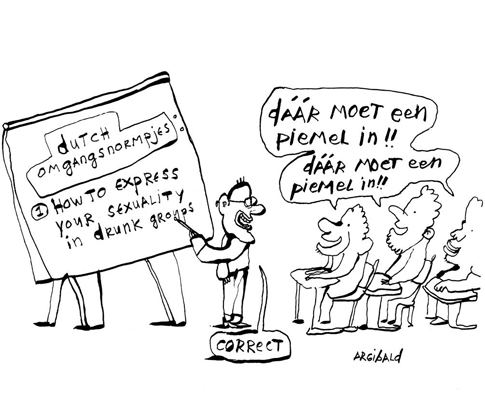 dutch
omgangsnormpjes
1 How to express
your sexuality
in drunk groups
dáár moet een
piemel in!!
dáár moet een
piemel in!!
correct
Argibald